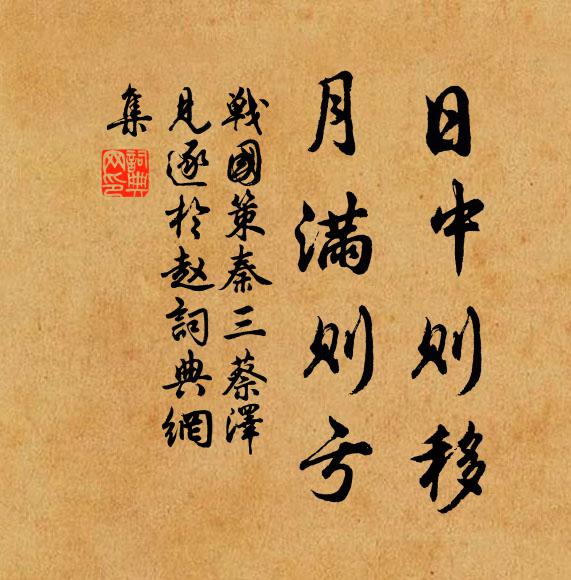 日中则移
月满则亏
战國策秦三蔡澤
見逐於赵詞典網
集
詞典
网印